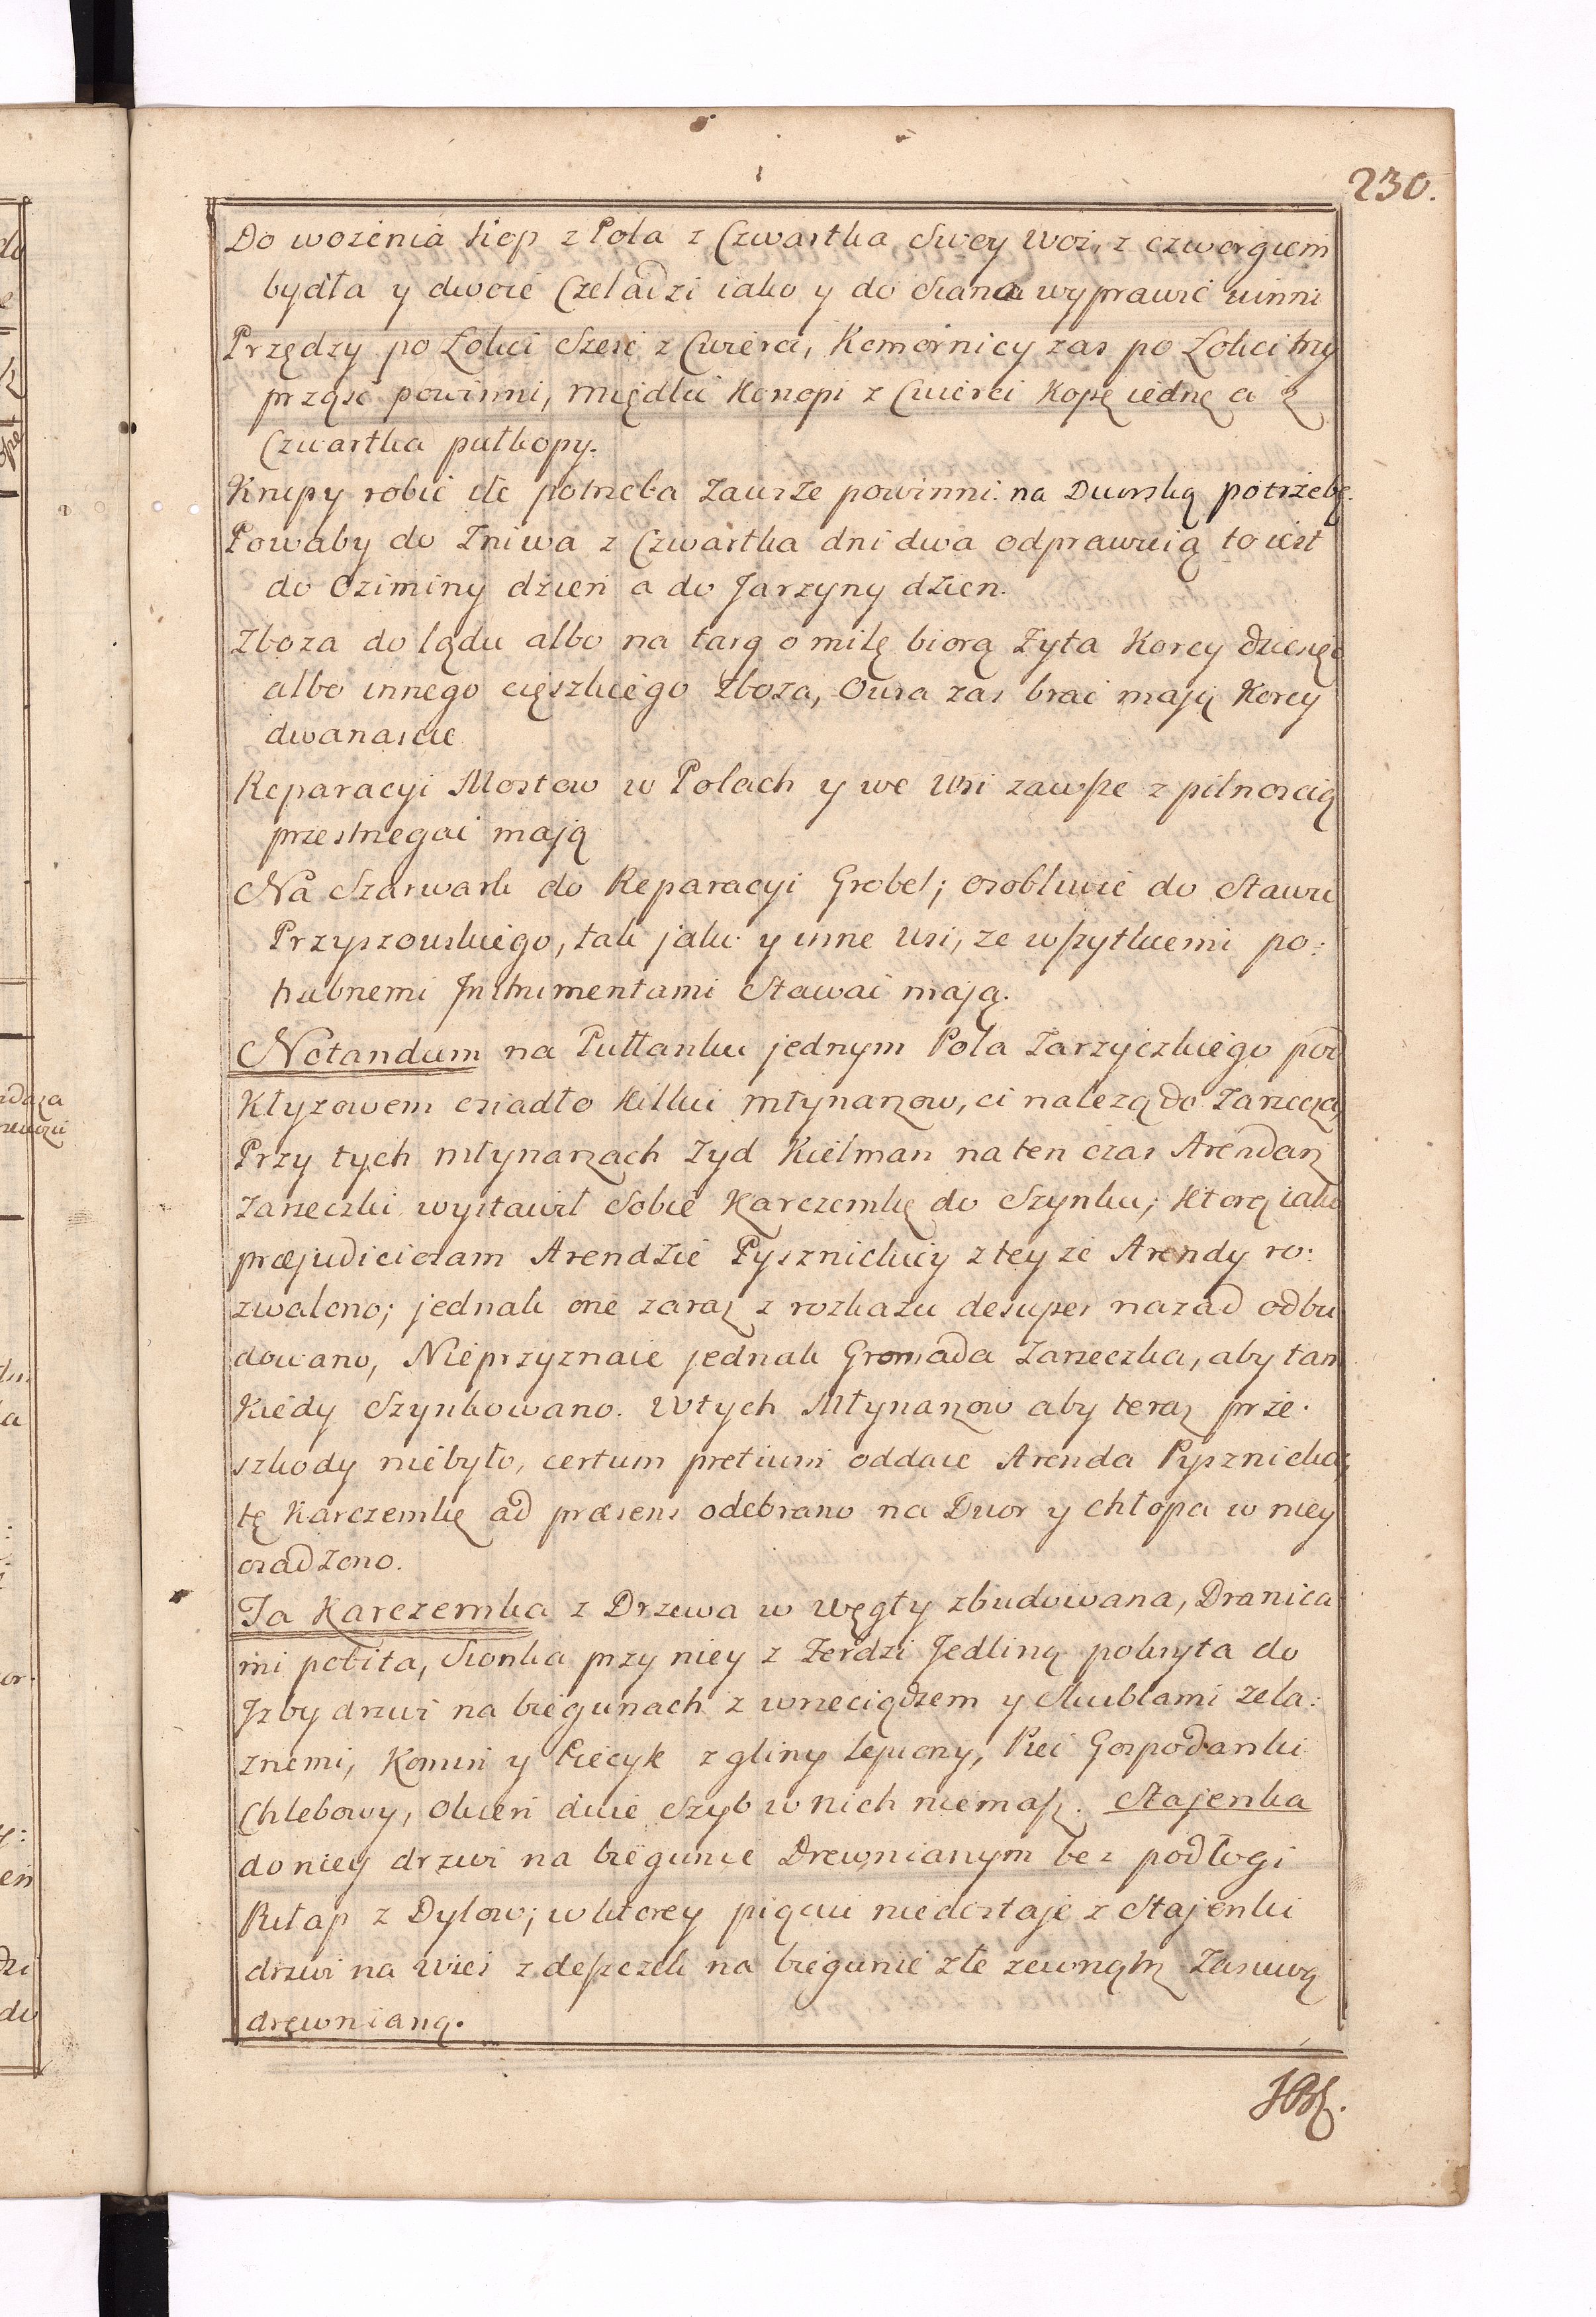 230.
Do wozenia kop z Pola z Czwartka Swey Woz, z czworgiem
bydła y dwoie Czeladzi iako y do Siana wyprawić winni
Przędzy po Łokci Szesc z Cwierci, Komornicy zas po Łokci trzy
prząść powinni, międlić Konopi z Cwierci Kopę iednę a z
Czwartka pułkopy.
Krupy robić ile potrzeba zawsze powinni na Dworską potrzebę.
Powaby do Zniwa z Czwartka dni dwa odprawuią to iest
do Oziminy dzień a do Jarzyny dzien.
Zboza do lądu albo na targ o milę biorą Zyta Korcy dziesięć
albo innego cięszkiego Zboza, Owsa zas brać mają Korcy
dwanascie
Reparacyi Mostow w Polach y we Wsi zawsze z pilnoscią
przestrzegać mają
Na Szarwark do Reparacyi Grobel; osobliwie do Stawu
Przyszowskiego, tak jako y inne Wsi, ze wszytkiemi po:
trzebnemi Instrumentami Stawać mają.
Notandum na Pułłanku jednym Pola Zarzyczkiego pod
Kłyzowem osiadło Kilku młynarzow, ci nalezą do Zarzecza,
Przy tych młynarzach Zyd Kielman na ten czas Arendarz
Zarzeczki wystawił Sobie Karczemkę do Szynku; Ktorą iako
præjudiciosam Arendzie Pysznickiey z teyze Arendy ro:
zwalono; jednak onę zaraz z rozkazu desuper nazad odbu
dowano, Nieprzyznaie jednak Gromada Zarzeczka, aby tam
kiedy Szynkowano. U tych Młynarzow aby teraz prze:
szkody niebyło, certum pretium oddaie Arenda Pysznicka,
tę Karczemkę ad præsens odebrano na Dwor y chłopa w niey
osadzono.
Ta Karczemka z Drzewa w węgły zbudowana, Dranica
mi pobita, Sionka przy niey z Zerdzi Jedliną pokryta do
Jzby drzwi na biegunach z wrzeciądzem y Skublami zela:
znemi, Komin y Piecyk z gliny lepiony, Piec Gospodarski
Chlebowy, Okien dwie Szyb w nich niemasz. Stajenka
do niey drzwi na biegunie Drewnianym bez podłogi
Pułap z Dylow; w ktorey pięciu niedostaje z Stajenki
drzwi na wies z deszczek na biegunie złe zewnątrz Zasuwą
drewnianą.